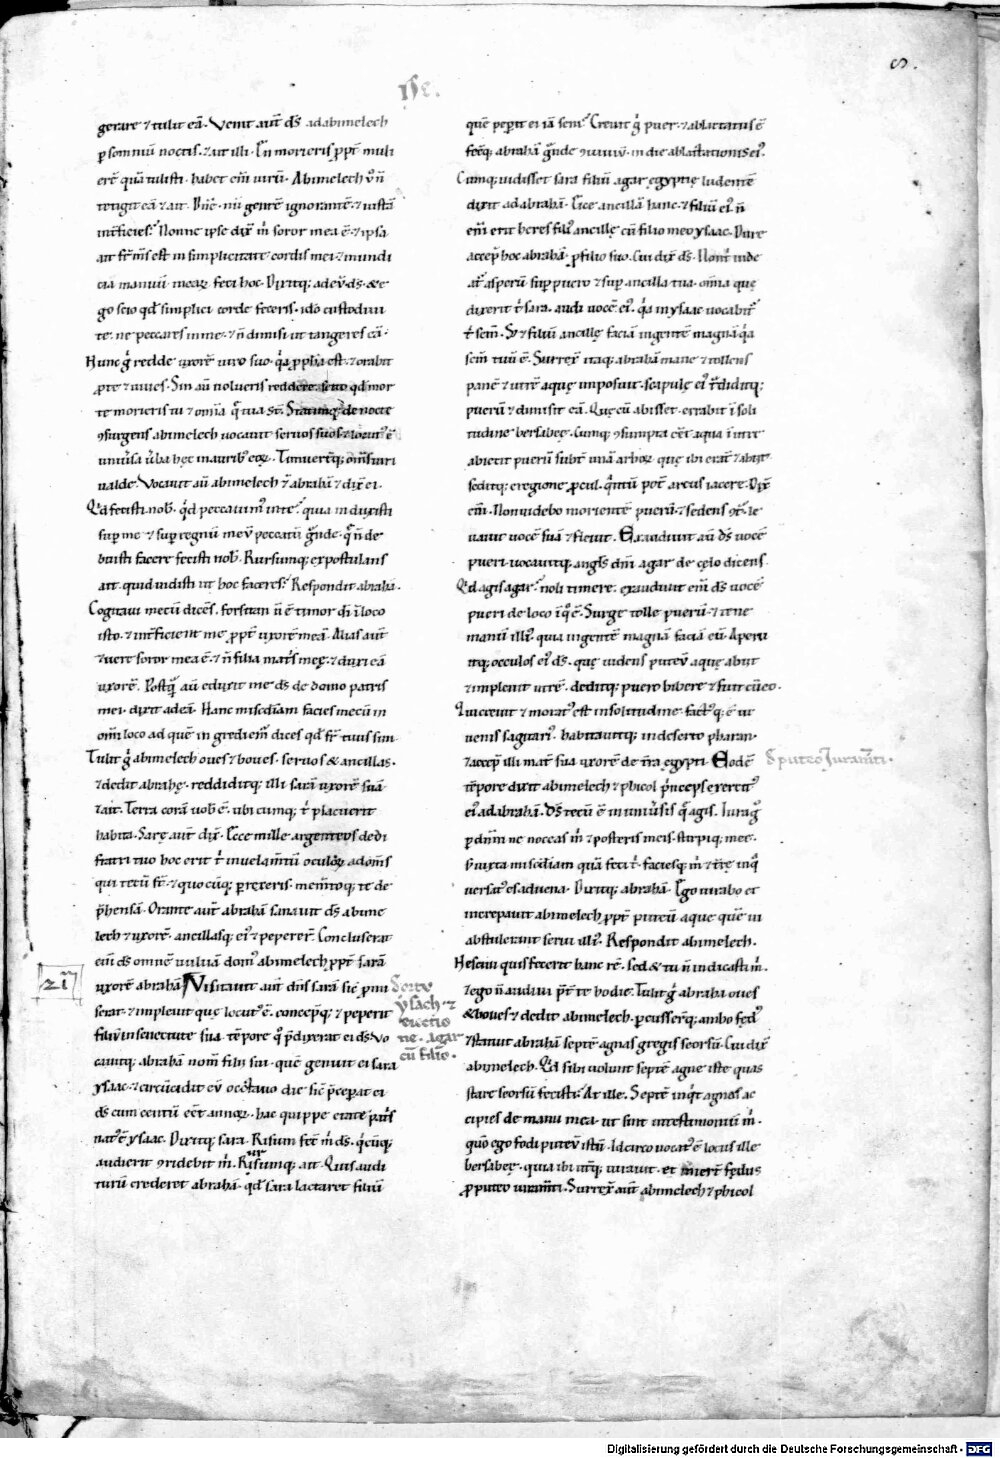 gerare ⁊ tulit eā. Venit aut̄ ds̄ ad abimelech
p somniū noctis. ⁊ ait illi. En morieris ꝓpt̄ muli
erē quā tulisti. habet em̄ virū. Abimelech v̄ ñ
tetigit eā ⁊ ait. Dn̄e. nū gentē ignorantē. ⁊ iustā
int̄ficies? Nonne ipse dix̄ m̄ soror mea ē. ⁊ ipsa
ait fr̄ m̄s est. in simplicitate cordis mei ⁊ mundi
cia manuū mearꝝ feci hoc. Dixitq; ad eū ds̄. & e
go scio qd̄ simplici corde feceris. ideo custodiui
te. ne peccares in me. ⁊ ñ dimisi ut tangeres eā.
Nunc ḡ redde uxorē uiro suo. q̄a ꝓpha est. ⁊ orabit
ꝓ te ⁊ uiues. Sin aū nolueris reddere. scito qd̄ mor
te morieris tu ⁊ om̄ia q̄ tua st̄. Statimq; de nocte
ꝯsurgens abimelech uocauit seruos suos. ⁊ locut᷒ ē
uniūsa ūba hęc in aurib᷒ eoꝝ. Timuerūtq; om̄s uiri
ualde. Vocauit aū abimelech ⁊ā abrahā ⁊ dix̄ ei.
Qd̄ fecisti nob̄. qd̄ peccauim᷒ in te. quia induxisti
sup̄ me ⁊ sup̄ regnū meū peccatū g̃nde. q̄ ñ de
buisti facere fecisti nob̄. Rursumq; expostulans
ait. quid uidisti ut hoc faceres? Respondit abrahā.
Cogitaui mecū dicēs. forsitan ñ ē timor dī ī loco
isto. ⁊ int̄ficient me ꝓpt̄ uxorē meā. Alias aut̄
⁊ uere soror mea ē. ⁊ ñ filia mat̄s meę. ⁊ duxi eā
uxorē. Postq̄ aū eduxit me ds̄ de domo patris
mei. dixit ad eā. Hanc mis̄c̄diam facies mecū in
om̄i loco ad quē ingrediem̄ dices qd̄ fr̄ tuus sim.
Tulit ḡ abimelech oues ⁊ boues. seruos & ancillas.
⁊ dedit abrahę. reddiditq; illi sarā uxorē suā
⁊ ait. Terra corā uob̄ ē. ubicumq; t̄ placuerit
habita. Sarę aut̄ dix̄. Ecce mille argenteos dedi
fratri tuo hoc erit t̄ in uelam̄tū oculoꝝ ad om̄s
qui tecū st̄. ⁊ quocūq; p̄rexeris. mem̄toq; te de
p̄hensā. Orante aut̄ abrahā sanauit ds̄ abime
lech ⁊ uxorē. ancillasq; ei᷒ ⁊ peperer̄. Concluserat
em̄ ds̄ omnē uuluā dom᷒ abimelech ꝓpt̄ sarā
uxorē abrahā. Visitauit aut̄ dn̄s sarā sic̄ ꝓmi
serat. ⁊ impleuit quę locut᷒ ē. concepitq; ⁊ peperit
filiū in senectute sua. tēpore q̄ p̄dixerat ei ds̄. Vo
cauitq; abrahā nom̄ filii sui. quē genuit ei sara
ysaac. ⁊ circūcidit eū octauo die sic̄ p̄cep̄at ei
ds̄ cum centū eēt annoꝝ. hac quippe etate pat̄s
nat᷒ ē ysaac. Dixitq; sara. Risum fec̄ m̄ ds̄. q̄cūq;
audierit ꝯridebit m̄. Rursumq; ait. Quis audi
turū crederet abrahā. qd̄ sara lactaret filiū
21
De ortu
ysach ⁊
eiectio
ne agar
cū filio.
quē pep̄it ei iā seni? Creuit ḡ puer. ⁊ ablactatus ē
fecitq; abrahā g̃nde ꝯuiuiū. in die ablactationis ei᷒.
Cumq; uidisset sara filiū agar egyptię ludentē
dixit ad abrahā. Eice ancillā hanc. ⁊ filiū ei᷒. ñ
em̄ erit heres fili᷒ ancillę cū filio meo ysaac. Dure
accep̄ hoc abrahā. ꝓ filio suo. Cui dix̄ ds̄. Non t̄ uide
at᷒ asperū sup̄ puero ⁊ sup̄ ancilla tua. om̄ia quę
dixerit t̄ sara. audi uocē ei᷒. q̄a in ysaac uocabit᷒
t̄ sem̄. Sꝫ ⁊ filiū ancillę faciā in gentē magnā q̄a
sem̄ tuū ē. Surrex̄ itaq; abrahā mane ⁊ tollens
panē ⁊ utrē aquę imposuit. scapulę ei᷒ t̄diditq;
puerū ⁊ dimisit eā. Quę cū abisset. errabat ī soli
tudine bersabeę. Cumq; ꝯsumpta eēt aqua ī utre
abiecit puerū subt̄ unā arboꝝ quę ibi erāt ⁊ abiit.
seditq; e regione ꝓcul. q̄ntū pot̄ arcus iacere. Dix̄
em̄. Non uidebo morientē puerū. ⁊ sedens ꝯt̄ le
uauit uocē suā ⁊ fleuit. Exaudiuit aū ds̄ uocē
pueri. uocauitq; angl̄s dn̄i agar de cęlo dicens.
Qd̄ agis agar? noli timere. exaudiuit em̄ ds̄ uocē
pueri de loco ī q̊ ē. Surge tolle puerū. ⁊ tene
manū illi᷒. quia in gentē magnā faciā eū. Aperu
itq; occulos ei᷒ ds̄. quę uidens puteū aquę abiit
⁊ impleuit utrē. deditq; puero bibere ⁊ fuit cū eo.
Qui creuit ⁊ morat᷒ est in solitudine. fact᷒q; ē iu
uenis sagittari᷒. habitauitq; in deserto pharan.
⁊ accep̄ illi mat̄ sua uxorē de t̄ra egypti. Eodē
tēpore dixit abimelech ⁊ phicol p̄nceps exercit᷒
ei᷒ ad abrahā. Ds̄ tecū ē in uniūsis q̄ agis. Iura g̊
p dn̄m ne noceas m̄ ⁊ posteris meis. stirpiq; meę.
s; iuxta mis̄c̄diam quā feci t̄. facies m̄ ⁊ t̄rę in q̄
uersat᷒ es aduena. Dixitq; abrahā. Ego iurabo et
increpauit abimelech ꝓpt̄ puteū aque quē ui
abstulerant serui illi᷒. Respondit abimelech.
Nesciui quis fecerit hanc rē. sed & tu ñ indicasti m̄.
⁊ ego ñ audiui p̄t̄ te hodie. Tulit ḡ abrahā oues
& boues ⁊ dedit abimelech. percusserūtq; ambo fęd᷒
⁊ statuit abrahā septē agnas gregis seorsū. Cui dix̄
abimelech. Qd̄ sibi uolunt septē agne iste quas
stare seorsū fecisti. At ille. Septē inq̄t agnas ac
cipies de manu mea. ut sint in testimoniū m̄.
quō ego fodi puteū istū. Idcirco uocat᷒ ē locus ille
bersabeę. quia ibi ut̄q; iurauit. et inier̄ fędus
ꝓ puteo iuram̄ti. Surrex̄ aut̄ abimelech ⁊ phicol
D̄ puteo Juram̄ti.
Digitalisierung gefördert durch die Deutsche Forschungsgemeinschaft - DFG